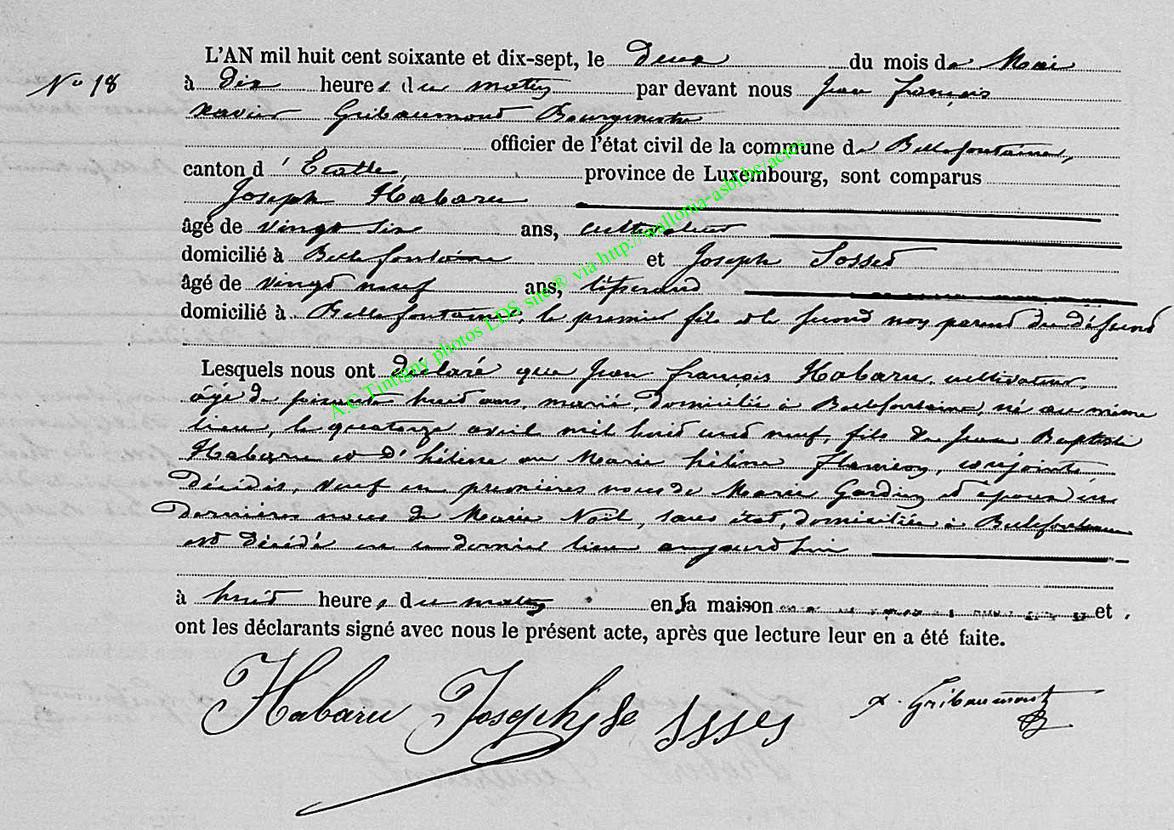 L'AN mil huit cent soixante et dix-sept, le deux du mois de Mai
No 18
à dix heures du matin par devant nous Jean françois
xavier Gribaumont Bourgmestre
officier de l'état civil de la commune de Bellefontaine,
canton d'Etalle, province de Luxembourg, sont comparus
Joseph Habaru
âgé de vingt six ans, cultivateur
domicilié à Bellefontaine et Joseph Sosses
âgé de vingt neuf ans, tisserand
domicilié à Bellefontaine, le premier fils et le second non parent du défunt
Lesquels nous ont déclaré que Jean françois Habaru, cultivateur,
âgé de soixante huit ans, marié, domicilié à Bellefontaine, né au même
lieu, le quatorze avril mil huit cent neuf, fils de Jean Baptiste
Habaru et d'hélène ou Marie hélène, conjoints
décédés, veuf en premières noces de Marie et époux en
dernières noces de Marie Noël, sans état, domiciliée à Bellefontaine
est décédé en ce dernier lieu aujourd'hui
à huit heures du matin en sa maison et
ont les déclarants signé avec nous le présent acte, après que lecture leur en a été faite.
Habaru Joseph X. Gribaumont
A.C.Tintigny photos LDS site® via http://wallonia-asbl.be/actes